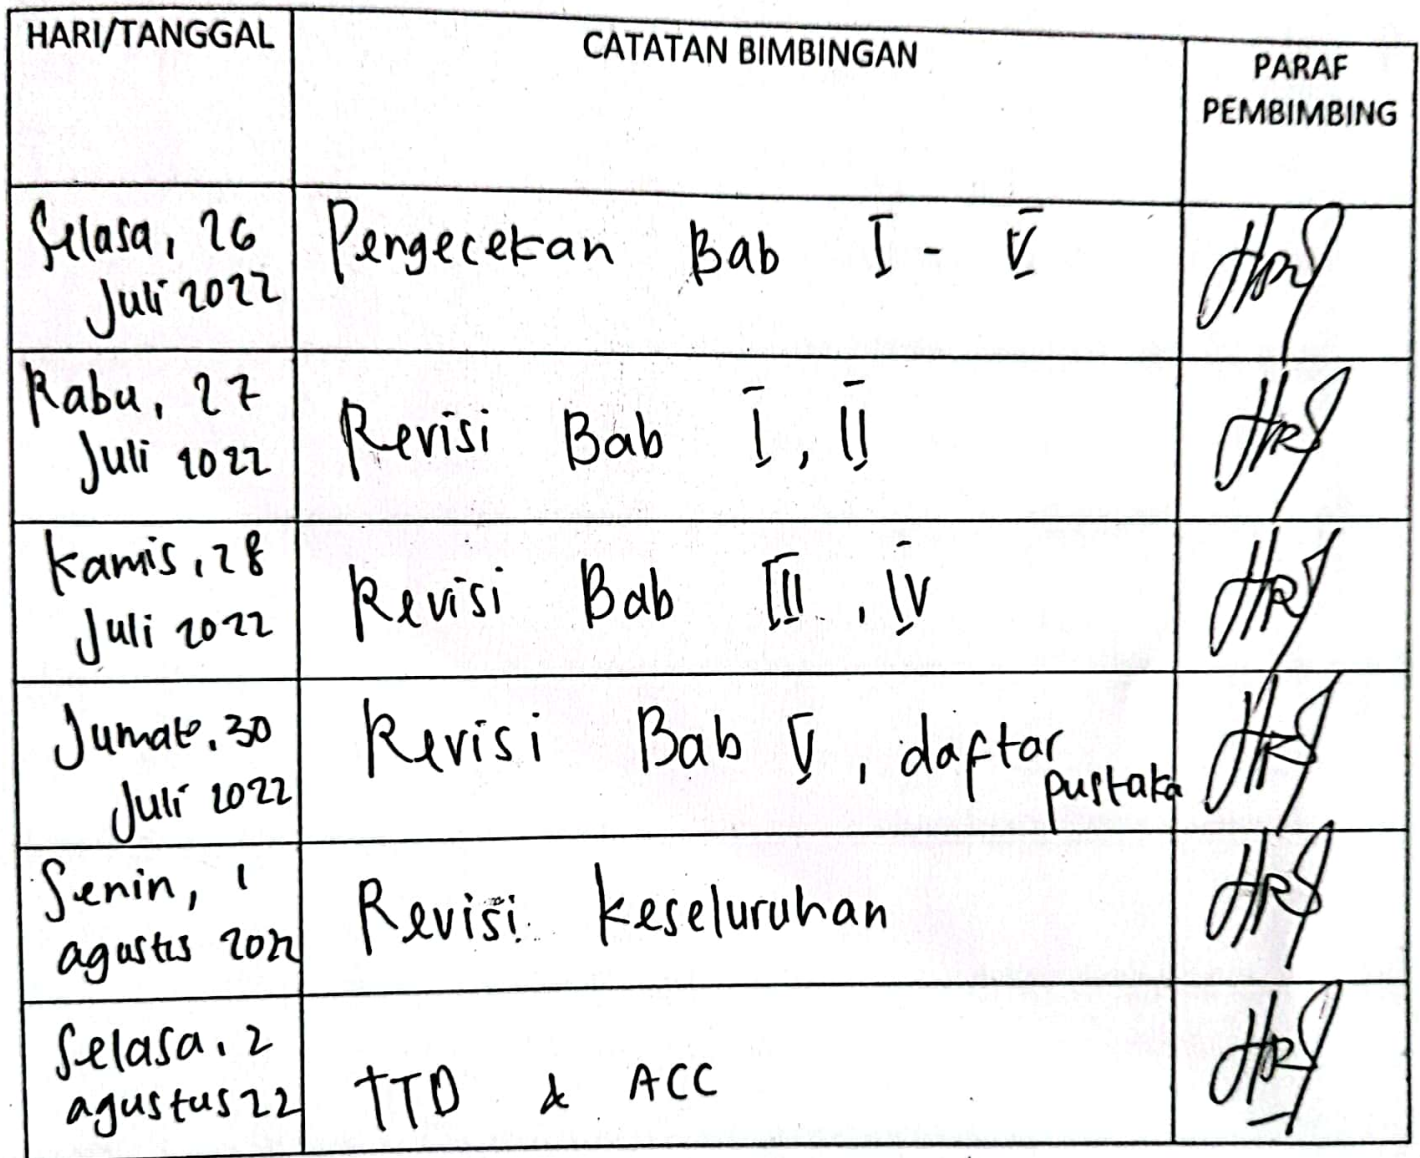 HARI/TANGGAL
CATATAN BIMBINGAN
PARAF
PEMBIMBING
Selasa, 26
Juli 2022
Pengecekan Bab I - V
Rabu, 27
Juli 2022
Revisi Bab I, II
Kamis, 28
Juli 2022
Revisi Bab III, IV
Jumat, 30
Juli 2022
Revisi Bab V, daftar
pustaka
Senin, 1
agustus 2022
Revisi keseluruhan
Selasa, 2
agustus 22
TTD & ACC